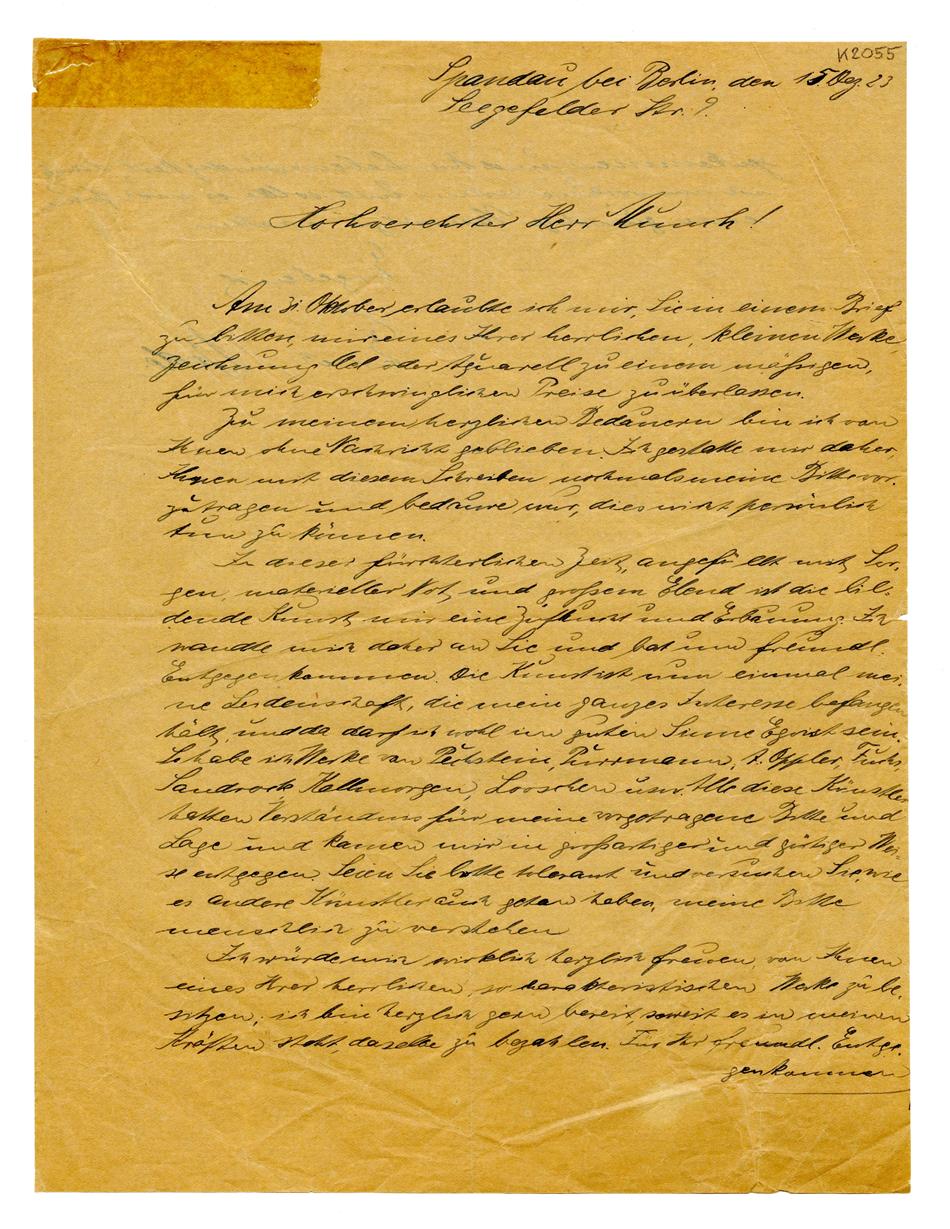 K2055
Spandau bei Berlin, den 15 Dez. 23
Seegefelder Str. 9.
Hochverehrter Herr Munch!
Am 31. Oktober, erlaubte ich mir, Sie in einem Brief
zu bitten, mir eines Ihrer herrlichen, kleinen Werke,
Zeichnung Oel oder Aquarell zu einem mässigen,
für mich erschwinglichen Preise zu überlassen.
Zu meinem herzlichen Bedauern bin ich von
Ihnen ohne Nachricht geblieben. Ich gestatte mir daher,
Ihnen mit diesem Schreiben nochmals meine Bitte vor-
zutragen und bedaure nur, dies nicht persönlich
tun zu können.
In dieser fürchterlichen Zeit, angefüllt mit Sor-
gen, materieller Not, und großem Elend ist die bil-
dende Kunst mir eine Zuflucht und Erbauung. Ich
wandte mich daher an Sie und bat um freundl.
Entgegenkommen. Die Kunst ist nun einmal mei-
ne Leidenschaft, die mein ganzes Interesse befangen
hält, und da darf ich wohl im guten Sinne Egoist sein.
So habe ich Werke von Pechstein, Purrmann, A. Oppler, Fuchs,
Sandrock, Kallmorgen, Looschen usw. Alle diese Künstler
hatten Verständnis für meine vorgetragene Bitte und
Lage und kamen mir in großartiger und gütiger Wei-
se entgegen. Seien Sie bitte tolerant und versuchen Sie, wie
es andere Künstler auch getan haben, meine Bitte
menschlich zu verstehen
Ich würde mich wirklich herzlich freuen, von Ihnen
eines Ihrer herrlichen, so charakteristischen Werke zu be-
sitzen; ich bin herzlich gern bereit, soweit es in meinen
Kräften steht, dasselbe zu bezahlen. Für Ihr freundl. Entge-
genkommen